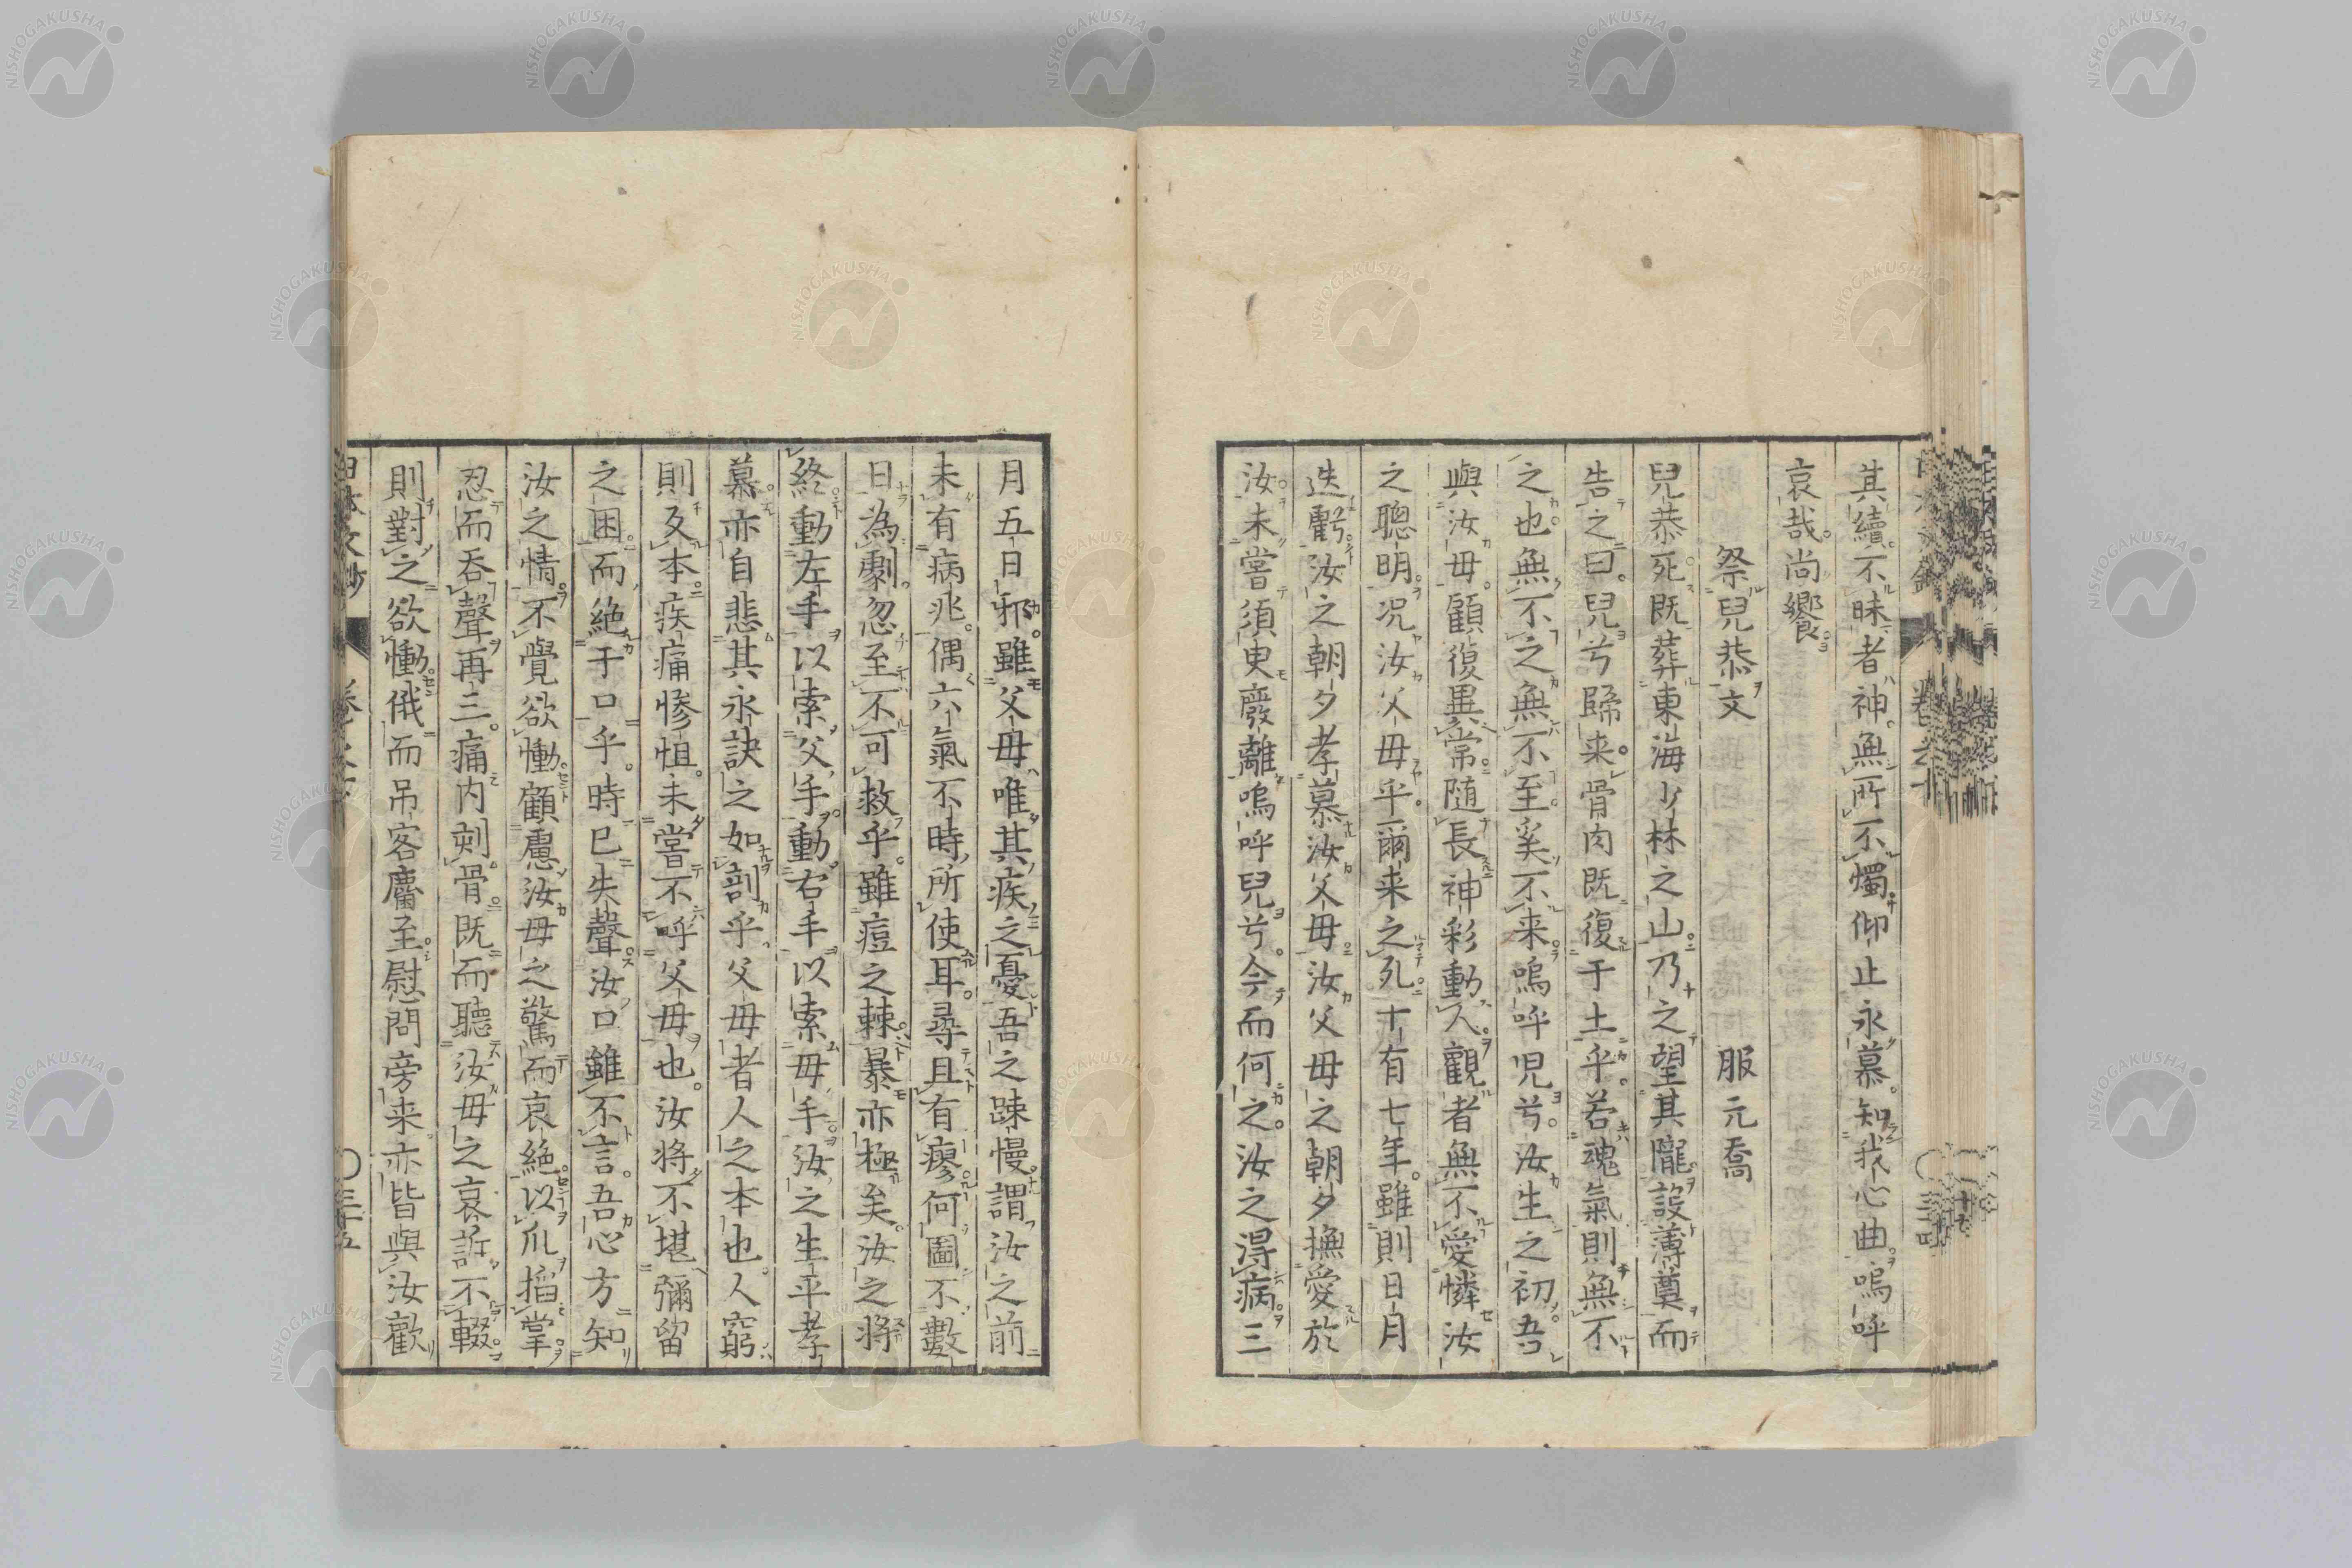 其續不昧者神無所不燭仰止永慕知我心曲嗚呼
哀哉尚饗
祭兒恭文 服元喬
兒恭死既葬東海少林之山乃之望其隴設薄奠而
告之曰兒兮歸来骨肉既復于土乎若魂氣則無不
之也無不之無不至奚不来嗚呼児兮汝生之初吾
與汝毋顧復異常随長神彩動人觀者無不愛憐汝
之聰明况汝父毋乎爾来之死十有七年雖則日月
迭虧汝之朝夕孝慕汝父毋汝父毋之朝夕撫愛於
汝未嘗須臾廢離嗚呼兒兮今而何之汝之得病三
月五日邪雖父毋唯其疾之憂吾之踈慢謂汝之前
未有病兆偶六氣不時所使耳尋且有瘳何圖不數
日為劇忽至不可救乎雖痘之棘暴亦極矣汝之將
終動左手以索父手動右手以索毋手汝之生平孝
慕亦自悲其永訣之如剖乎父毋者人之本也人窮
則反本疾痛惨怛未嘗不呼父毋也汝將不堪彌留
之困而絶于口乎時已失聲汝口雖不言吾心方知
汝之情不覺欲慟顧慮汝毋之驚而哀絶以爪搯掌
忍而呑聲再三痛内刻骨既而聽汝毋之哀訴不輟
則對之欲慟俄而吊客麕至慰問旁来亦皆與汝歡
三十五
NISHOGAKUSHA